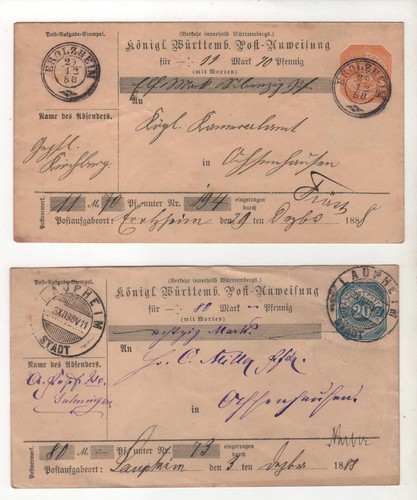 Post-Aufgabe-Stempel.
(Verkehr innerhalb Württembergs.)
Königl. Württemb. Post-Anweisung
für 11 Mark 70 Pfennig
(mit Worten)
Elf Mark Siebenzig Pf.
EROLZHEIM
12
88
EROLZHEIM
12
88
An
Kgl. Kameralamt
in Ochsenhausen
Name des Absenders.
Kirchberg.
Postvermerk. 11 M. 70 Pf. unter Nr. 194 eingetragen durch
Postaufgabeort: Erolzheim den 29 ten Dezbr 1888
Post-Aufgabe-Stempel.
(Verkehr innerhalb Württembergs.)
Königl. Württemb. Post-Anweisung
für 80 Mark – Pfennig
(mit Worten)
achtzig Mark
LAUPHEIM
STADT
LAUPHEIM
20
STADT
An
in Ochsenhausen
Name des Absenders.
Postvermerk. 80 M. – Pf. unter Nr. 73 eingetragen durch
Postaufgabeort: Laupheim den 3 ten Dezbr 1888